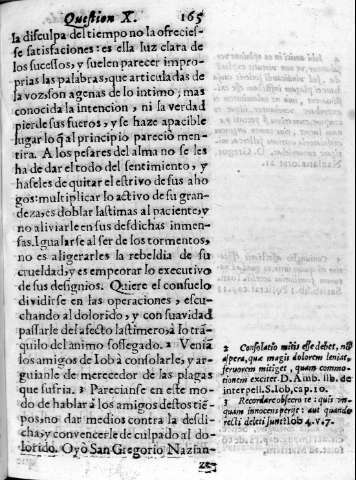 Question X. 165
la disculpa del tiempo no la ofrecies-
se satisfaciones: es ella luz clara de
los sucessos, y suelen parecer impro-
prias las palabras, que articuladas de
la voz, son agenas de lo intimo; mas
conocida la intencion, ni la verdad
pierde sus fueros, y se haze apacible
lugar lo q̃ al principio pareciò men-
tira. A los pesares del alma no se les
ha de dar el todo del sentimiento, y
haseles de quitar el estrivo de sus aho
gos: multiplicar lo activo de su gran-
deza, es doblar lastimas al paciente, y
no aliviarle en sus desdichas inmen-
sas. Igualarse al ser de los tormentos,
no es aligerarles la rebeldia de su
crueldad, y es empeorar lo executivo
de sus designios. Quiere el consuelo
dividirse en las operaciones, escu-
chando al dolorido, y con suavidad
passarle del afecto lastimero, à lo trã-
quilo del animo sossegado. 2 Venia
los amigos de Iob à consolarle, y ar-
guianle de merecedor de las plagas
que sufria. 3 Parecianse en este mo-
do de hablar à los amigos destos tiẽ-
pos, no dar medios contra la desdi-
cha, y convencerle de culpado al do-
lorido. Oyò San Gregorio Nazian-
2 Consolatio mitis esse debet, nõ
aspera, que magis dolorem leniat,
fervorem mitiget, quam commo-
tionem exciter. D. Amb. lib. de
interpell. S. Iob, cap. 10.
3 Recordare obsecro te: quis un-
quam innocens perijt: aut quando
recti deleti sunt: Iob 4. v. 7.